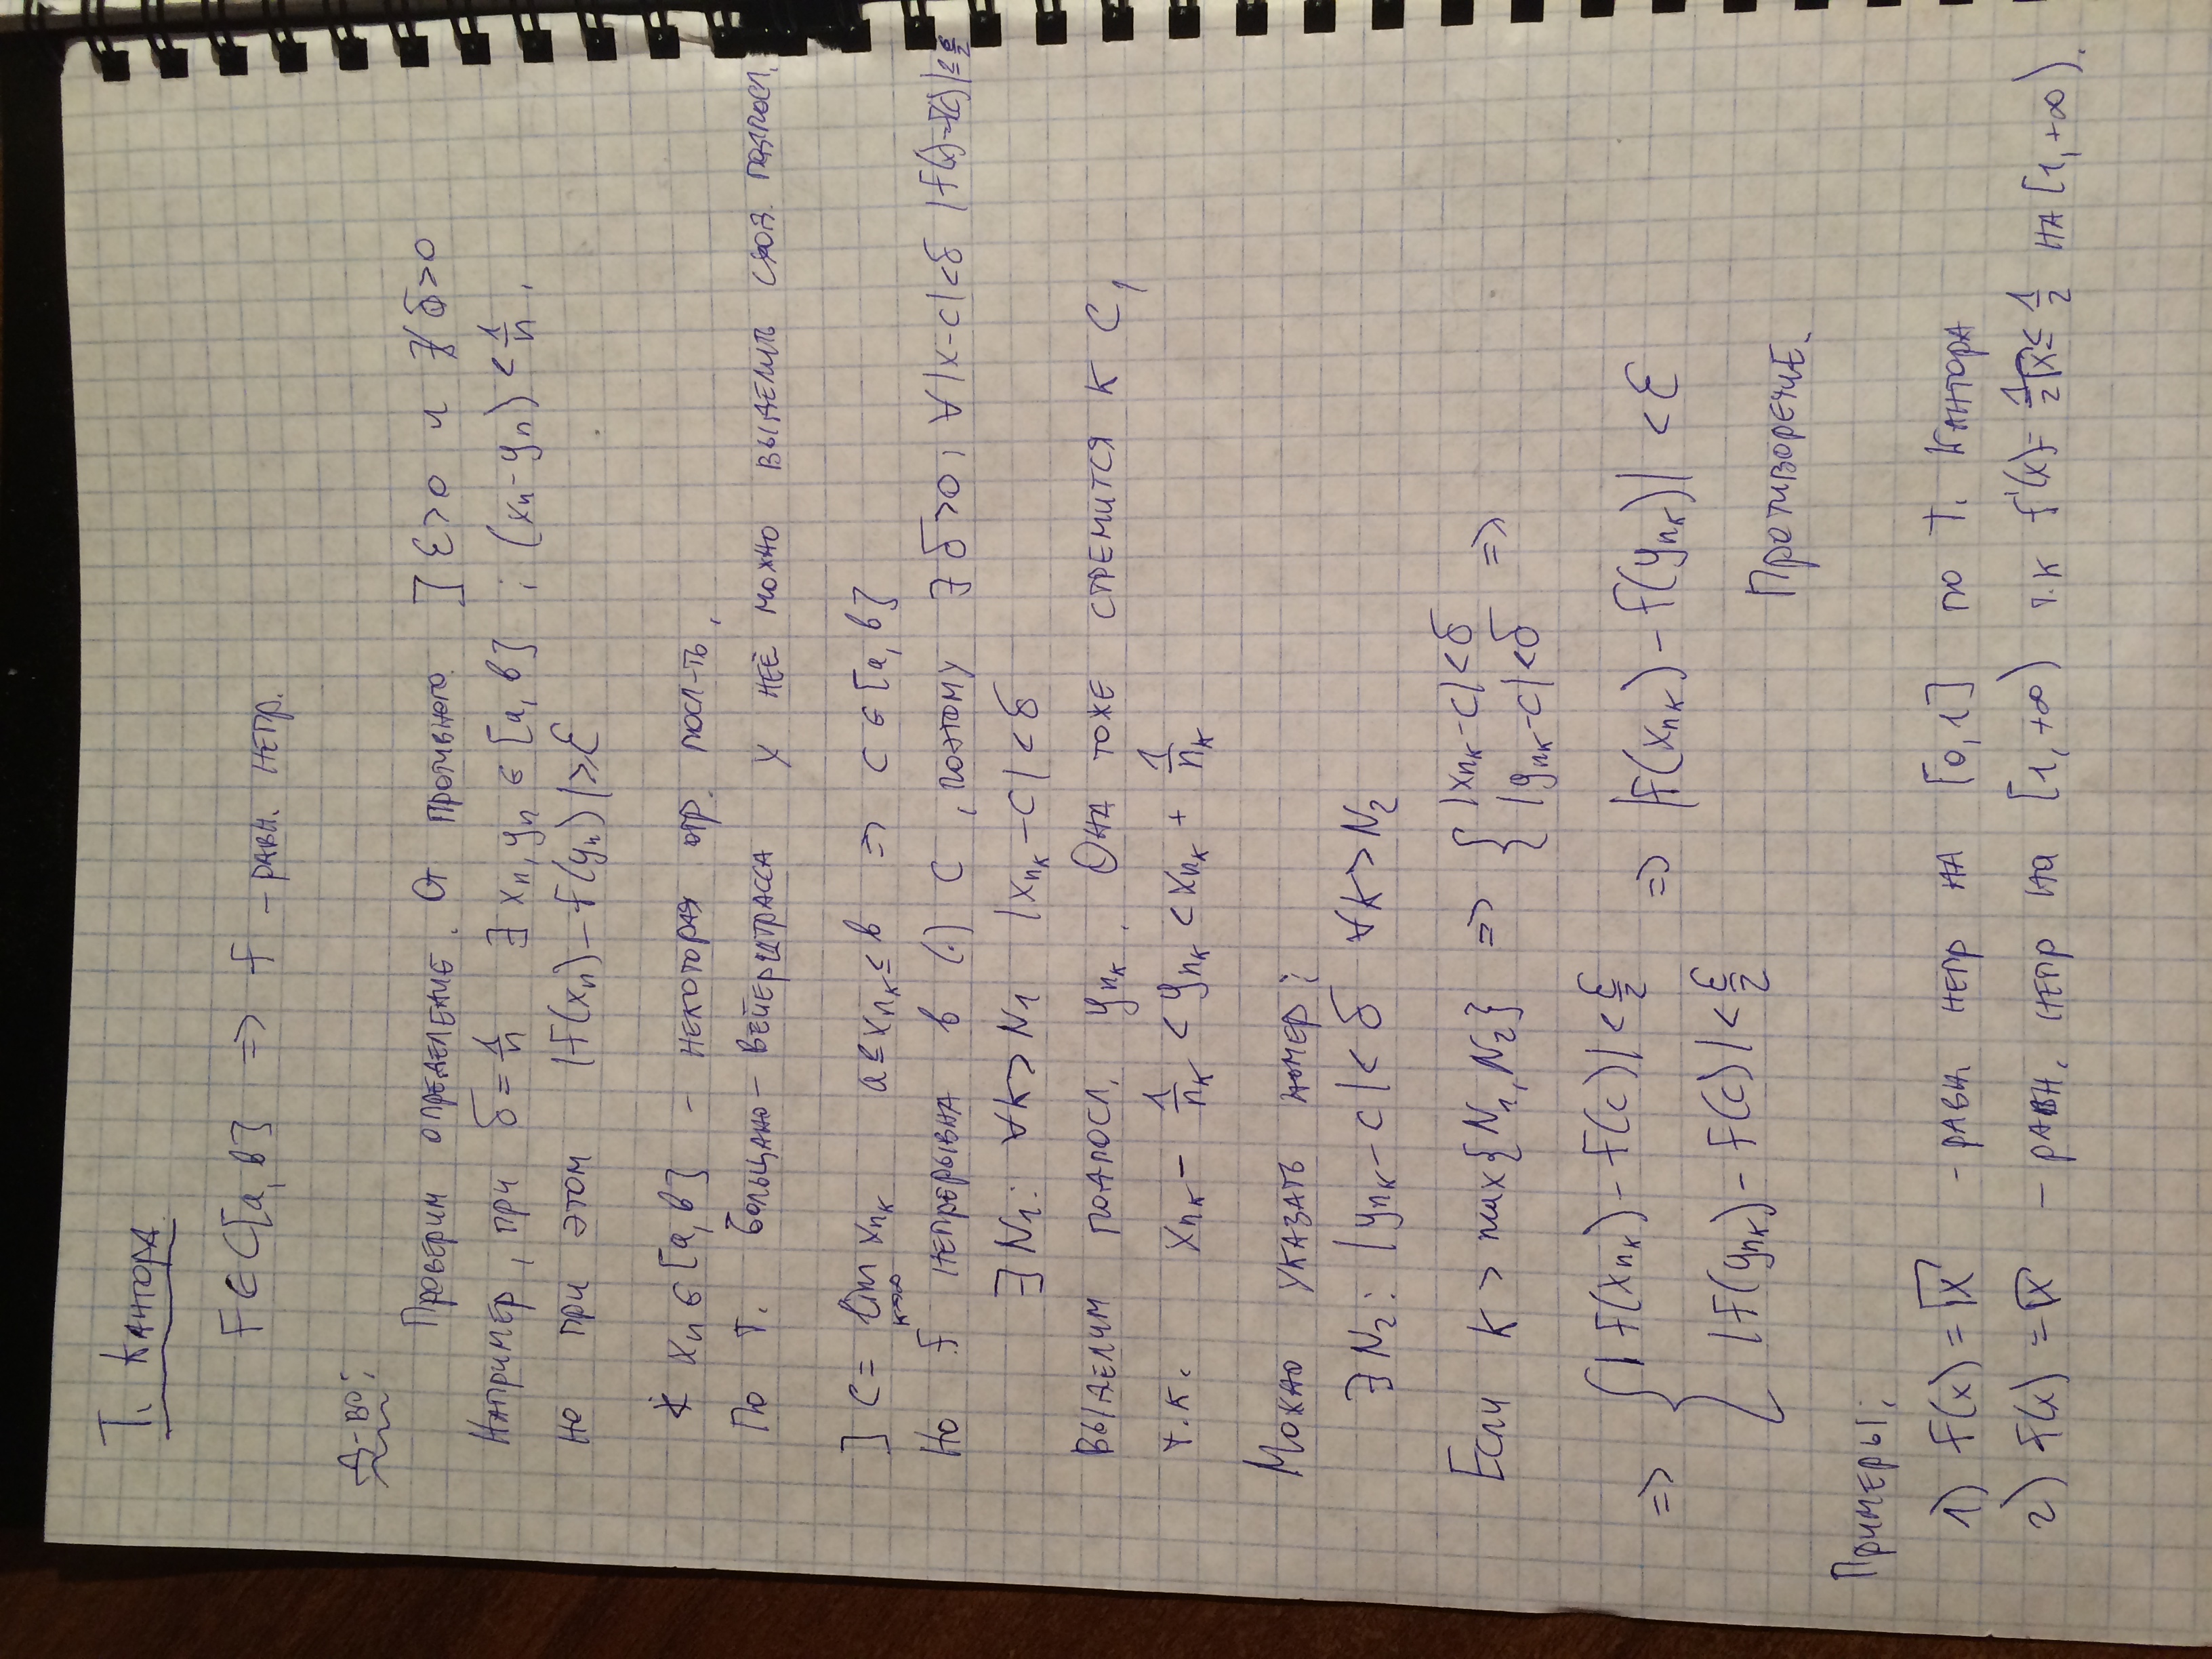 Т. Кантора
f ∈ C[a, b] => f – равн. непр.
Д-во:
Проверим определение. От противного. ] ε>0 и ∄ δ>0
Например, при δ = 1/n ∃ xₙ, yₙ ∈ [a, b] : (xₙ - yₙ) < 1/n,
но при этом |f(xₙ) - f(yₙ)| ≥ ε
xₙ ∈ [a, b] – некоторая огр. посл-ть,
По т. Больцано – Вейерштрасса у неё можно выделить сход. подпосл.
] c = lim_{k→∞} x_{n_k} a ≤ x_{n_k} ≤ b => c ∈ [a, b]
Но f непрерывна в (·) c, поэтому ∃ δ>0: ∀ |x-c|<δ |f(x)-f(c)| ≤ ε/2
∃ N₁: ∀k > N₁ |x_{n_k} - c| < δ
Выделим подпосл. y_{n_k}. Она тоже стремится к c,
т.к. x_{n_k} - 1/n_k < y_{n_k} < x_{n_k} + 1/n_k
Можно указать номер:
∃ N₂: |y_{n_k} - c| < δ ∀k > N₂
Если k > max{N₁, N₂} => { |x_{n_k} - c| < δ
|y_{n_k} - c| < δ =>
=> { |f(x_{n_k}) - f(c)| < ε/2
|f(y_{n_k}) - f(c)| < ε/2 => |f(x_{n_k}) - f(y_{n_k})| < ε
Противоречие.
Примеры:
1) f(x) = √x – равн. непр на [0, 1] по т. Кантора
2) f(x) = √x – равн. непр на [1, +∞) т.к f'(x) = 1/2√x ≤ 1/2 на [1, +∞).